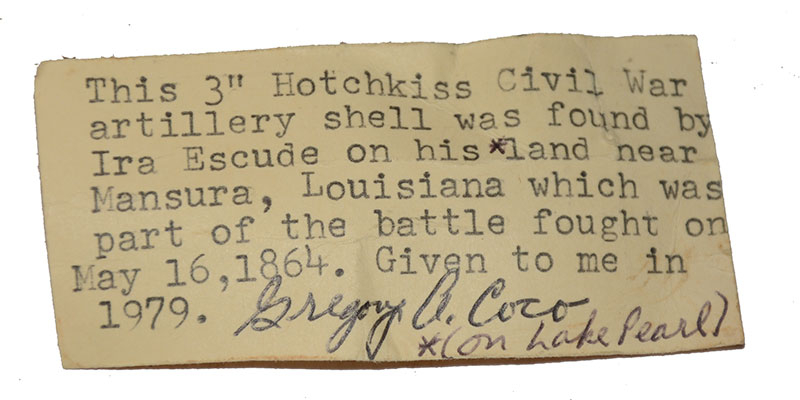 This 3" Hotchkiss Civil War
artillery shell was found by
Ira Escude on his *land near
Mansura, Louisiana which was
part of the battle fought on
May 16,1864. Given to me in
1979. Gregory A. Coco
*(on Lake Pearl)